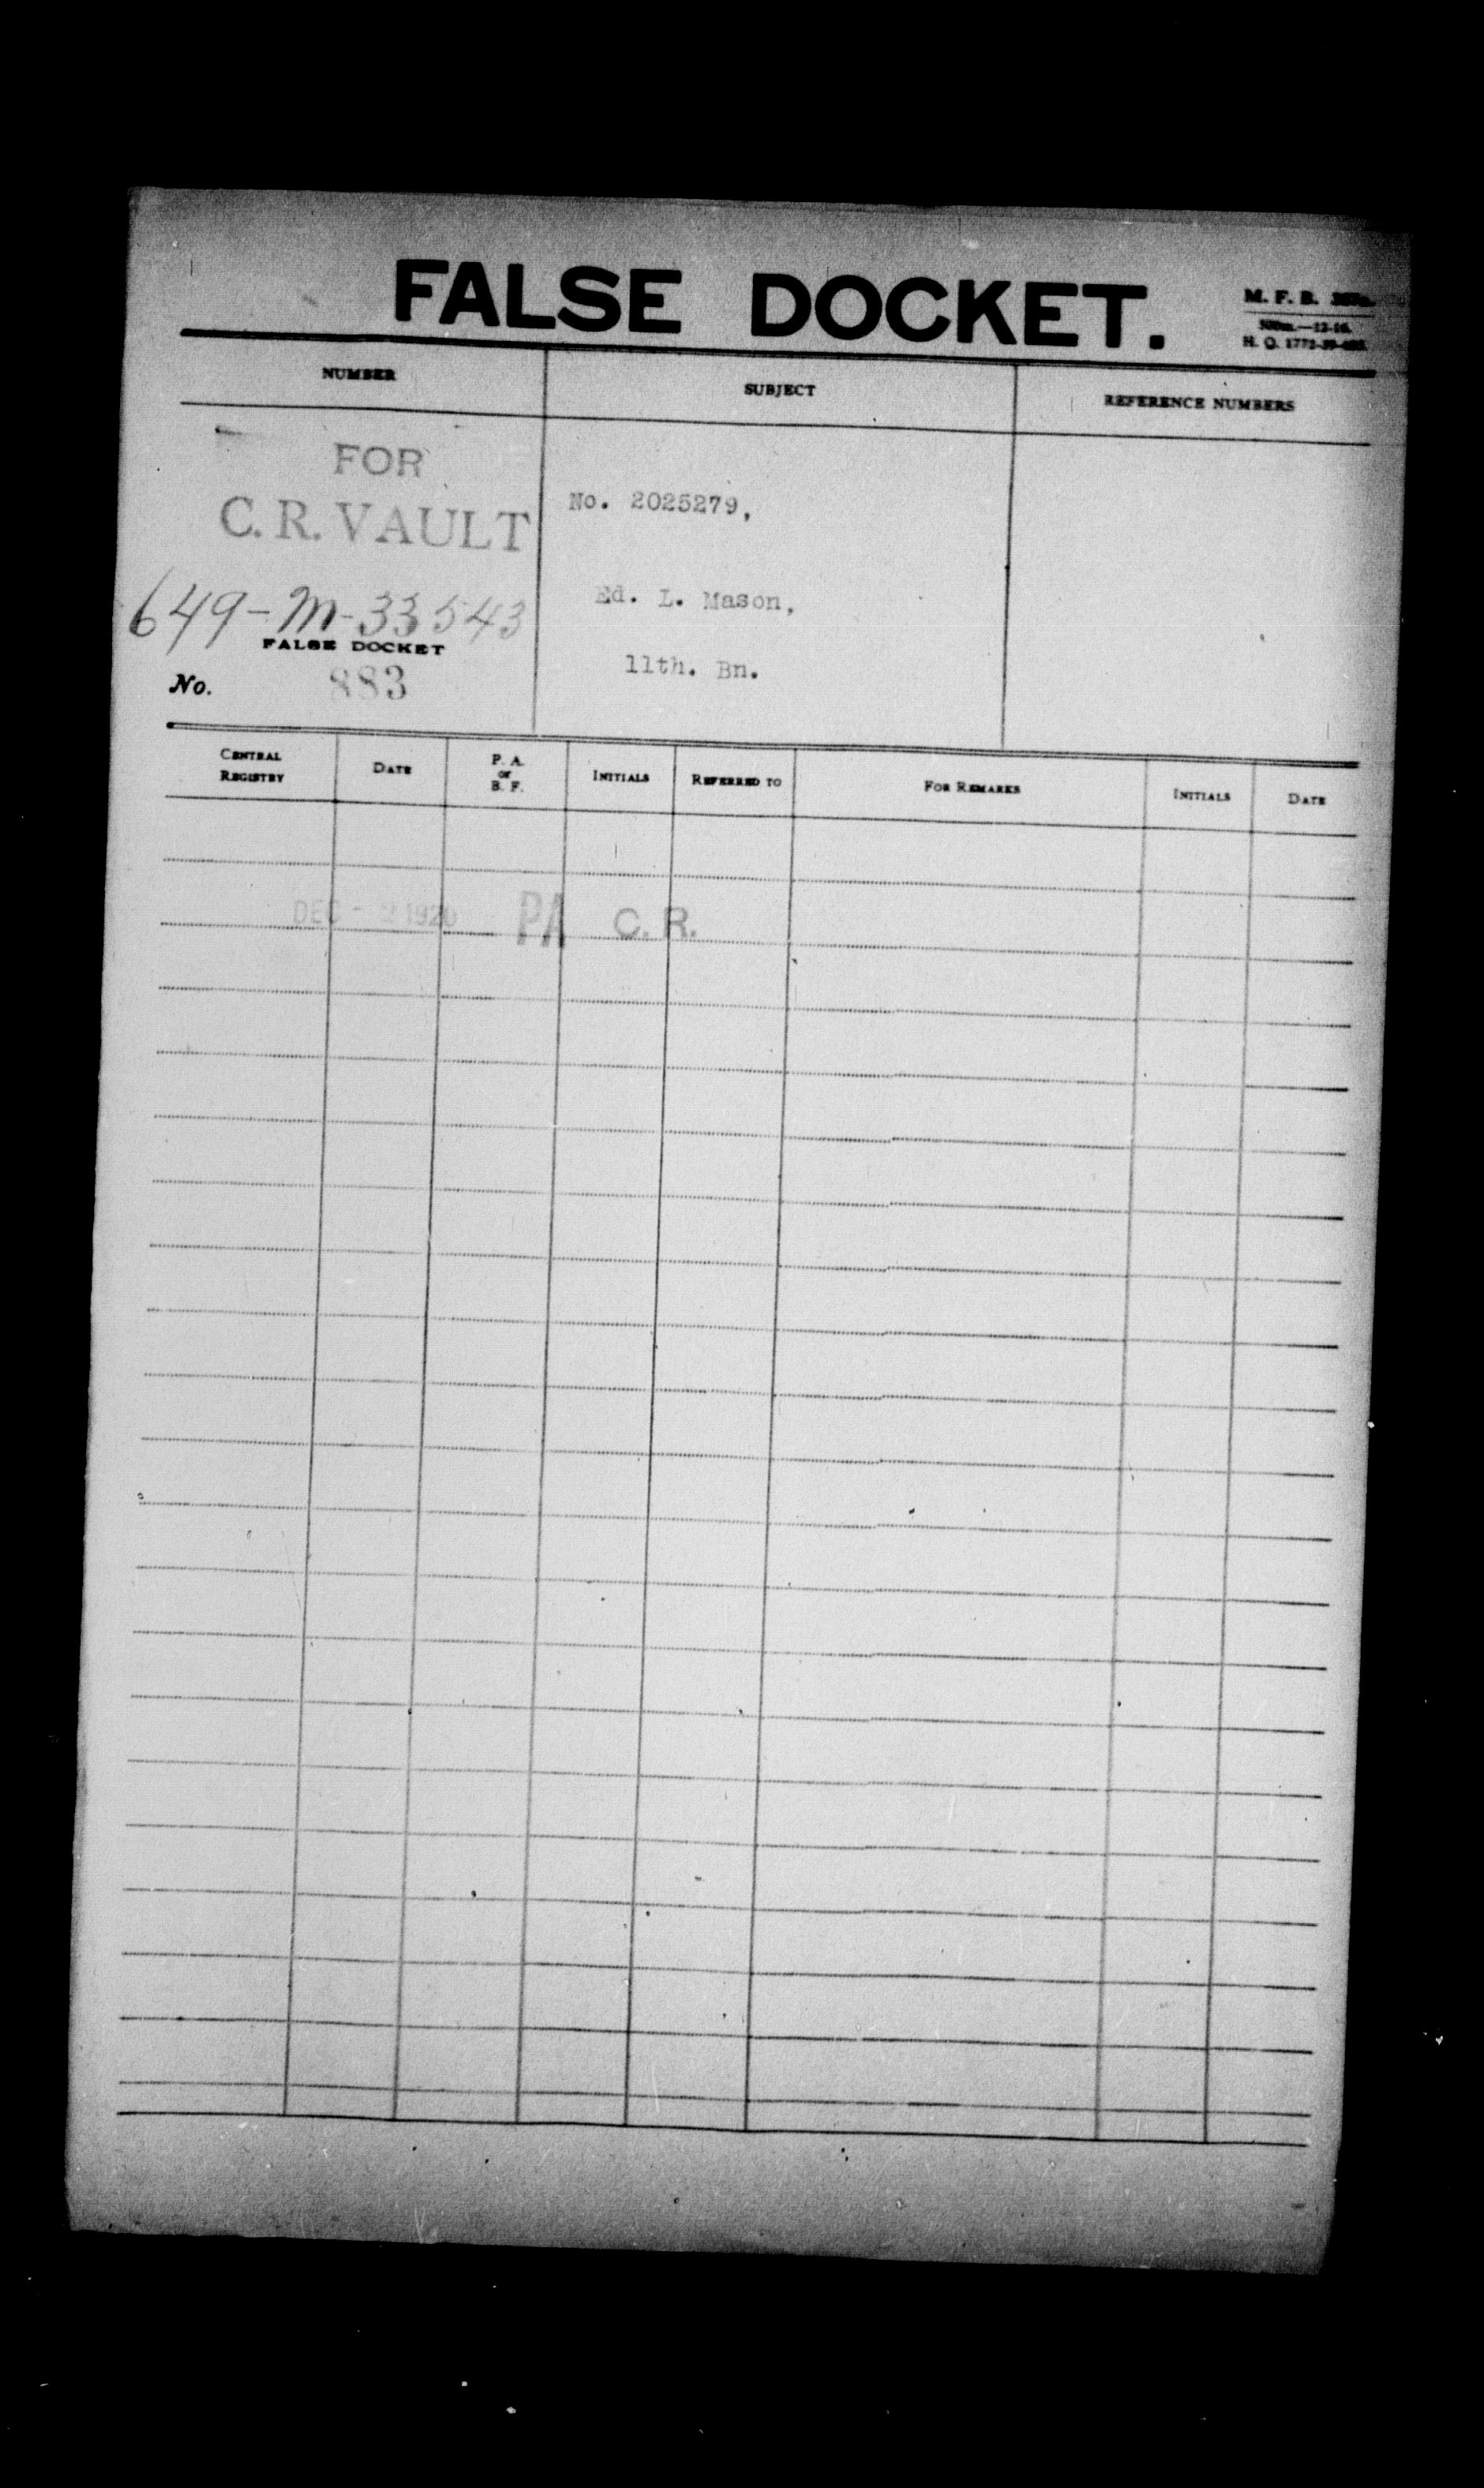 FALSE DOCKET.
M. F. B.
H. Q. 1772-39-
NUMBER
SUBJECT
REFERENCE NUMBERS
FOR
C. R. VAULT
649-M-33543
FALSE DOCKET
No. 883
No. 2025279,
Ed. L. Mason,
11th. Bn.
CENTRAL REGISTRY
DATE
P. A. or B. F.
INITIALS
REFERRED TO
FOR REMARKS
INITIALS
DATE
DEC - 2 1920 PA C. R.